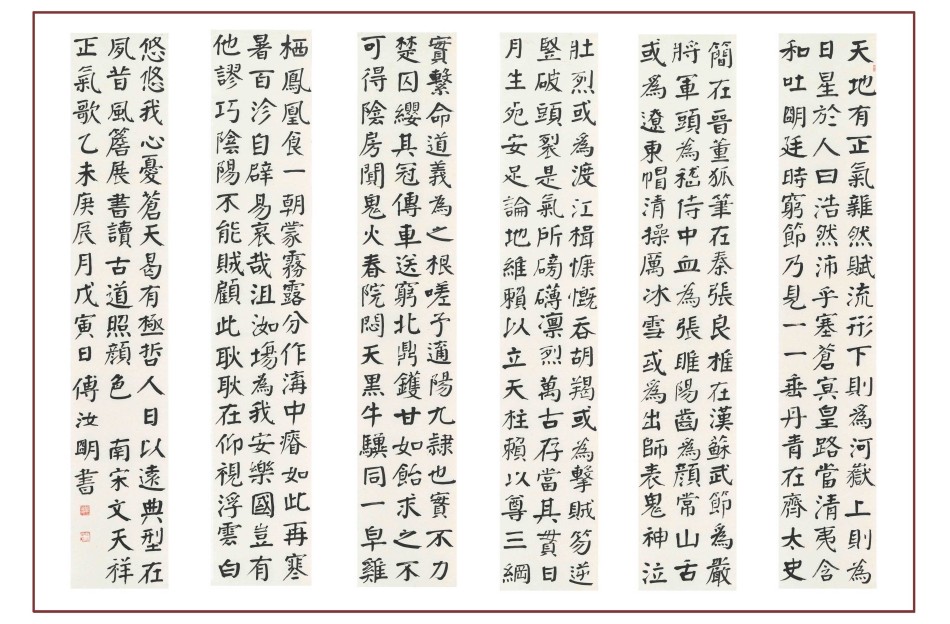 天地有正氣雜然賦流形下則為河嶽上則為
日星於人曰浩然沛乎塞蒼冥皇路當清夷含
和吐明廷時窮節乃見一一垂丹青在齊太史
簡在晉董狐筆在秦張良椎在漢蘇武節爲嚴
將軍頭為嵇侍中血為張睢陽齒為顏常山舌
或爲遼東帽清操厲冰雪或爲出師表鬼神泣
壯烈或爲渡江楫慷慨吞胡羯或為擊賊笏逆
豎破頭裂是氣所磅礴凜烈萬古存當其貫日
月生死安足論地維賴以立天柱賴以尊三綱
實繫命道義為之根嗟予遘陽九隸也實不力
楚囚纓其冠傳車送窮北鼎鑊甘如飴求之不
可得陰房聞鬼火春院悶天黑牛驥同一皁雞
栖鳳凰食一朝蒙霧露分作溝中瘠如此再寒
暑百沴自辟易哀哉沮洳場為我安樂國豈有
他謬巧陰陽不能賊顧此耿耿在仰視浮雲白
悠悠我心憂蒼天曷有極哲人日以遠典型在
夙昔風簷展書讀古道照顏色 南宋文天祥
正氣歌乙未庚辰月戊寅日傅汝明書